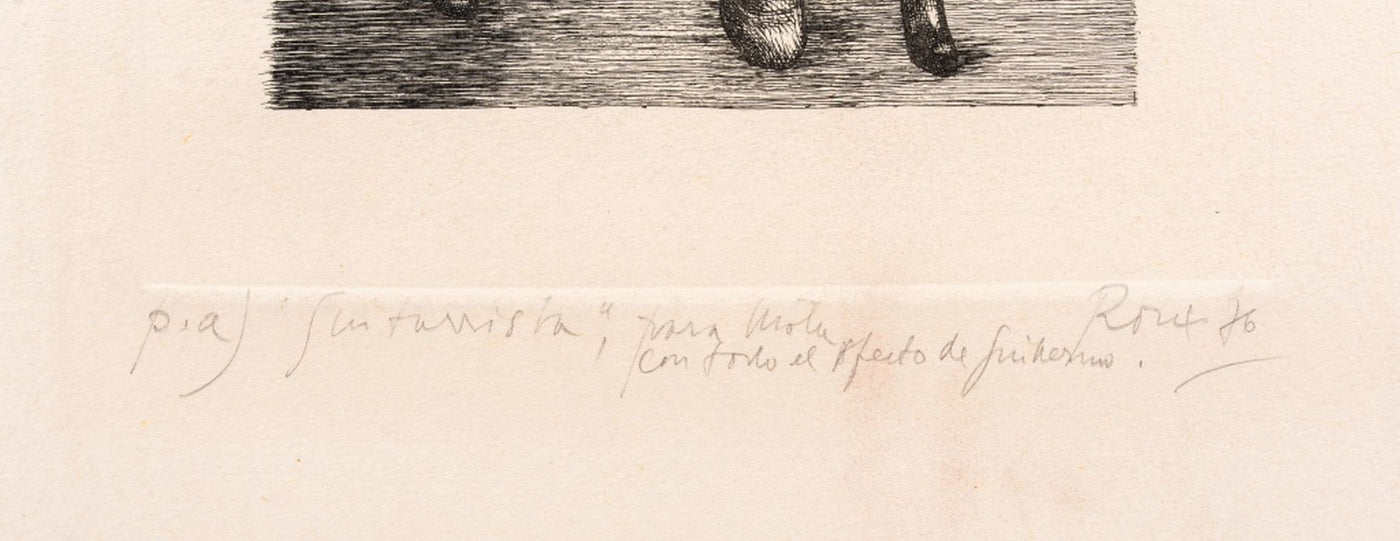 p.a) "Guitarrista", para Mota Roux 76
con todo el afecto de Guillermo.